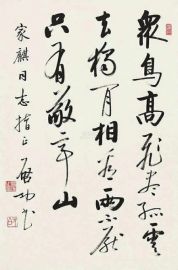 衆鳥高飛盡孤雲
去獨閒相看兩不厭
只有敬亭山
家麒同志指正 啓功書